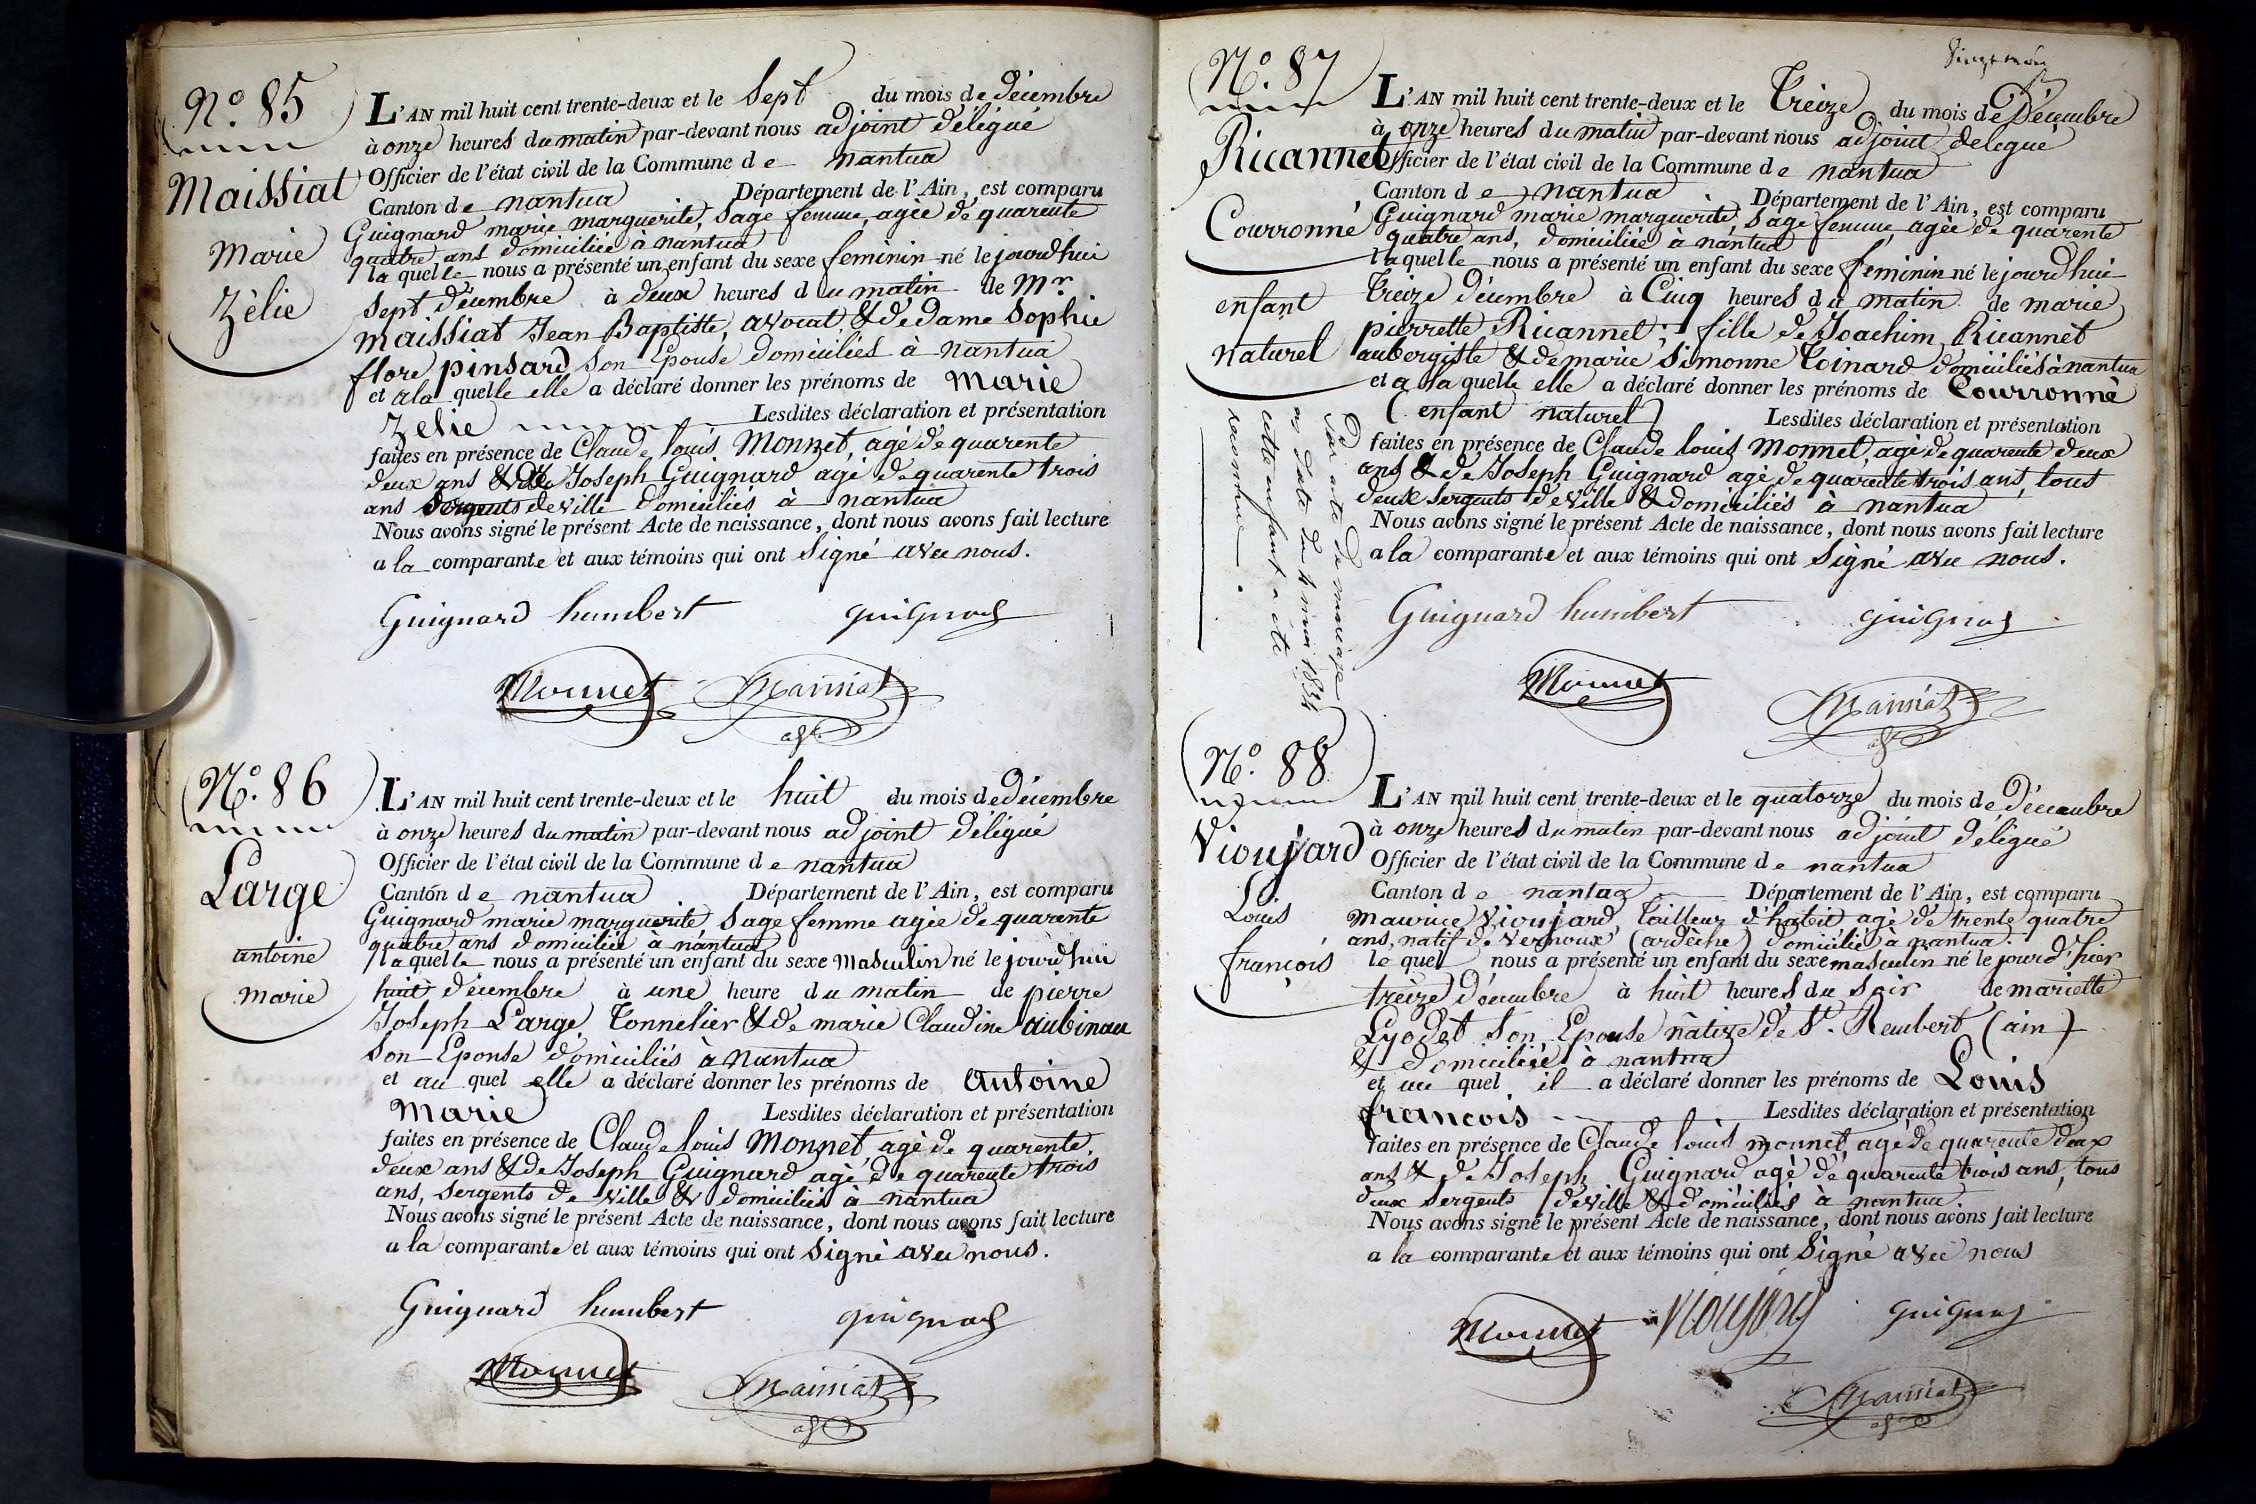 N.° 85
Maissiat
Marie
Zélie
L'AN mil huit cent trente-deux et le Sept du mois de décembre
à onze heures du matin par-devant nous adjoint délégué
Officier de l'état civil de la Commune de nantua
Canton de nantua Département de l'Ain, est comparu
Guignard marie marguerite, Sage femme, agée de quarente
quatre ans domiciliée à nantua
laquelle nous a présenté un enfant du sexe feminin né le jourd'hui
Sept décembre à deux heures du matin de Mr
maissiat Jean Baptiste, avocat & de dame Sophie
flore pinsard son Epouse domiciliés à nantua
et a la quelle elle a déclaré donner les prénoms de Marie
Zelie Lesdites déclaration et présentation
faites en présence de Claude louis Monnet, agé de quarente
deux ans & de Joseph Guignard agé de quarente trois
ans Sergents de ville domiciliés à nantua
Nous avons signé le présent Acte de naissance, dont nous avons fait lecture
a la comparante et aux témoins qui ont Signé avec nous.
Guignard humbert guignard
Monnet Maissiat
adt
N.° 86
Large
antoine
marie
L'AN mil huit cent trente-deux et le huit du mois de décembre
à onze heures du matin par-devant nous adjoint délégué
Officier de l'état civil de la Commune de nantua
Canton de nantua Département de l'Ain, est comparu
Guignard marie marguerite, Sage femme agée de quarente
quatre ans domiciliée à nantua
laquelle nous a présenté un enfant du sexe Masculin né le jourd'hui
huit décembre à une heure du matin de pierre
Joseph Large, Tonnelier & de marie Claudine aubinau
Son Epouse domiciliés à nantua
et au quel elle a déclaré donner les prénoms de Antoine
Marie Lesdites déclaration et présentation
faites en présence de Claude louis Monnet, agé de quarente
deux ans & de Joseph Guignard agé de quarente trois
ans, Sergents de ville & domiciliés à nantua
Nous avons signé le présent Acte de naissance, dont nous avons fait lecture
a la comparante et aux témoins qui ont Signé avec nous.
Guignard humbert guignard
Monnet Maissiat
adt
N.° 87
Ricannet
Courronné
enfant
naturel
Par acte de mariage
en date du 4 mai 1834
cette enfant a été
reconnue.
L'AN mil huit cent trente-deux et le Treize du mois de Décembre
à onze heures du matin par-devant nous adjoint delégué
Officier de l'état civil de la Commune de nantua
Canton de nantua Département de l'Ain, est comparu
Guignard marie marguerite, Sage femme, agée de quarente
quatre ans, domiciliée à nantua
laquelle nous a présenté un enfant du sexe feminin né le jourd'hui
Treize décembre à Cinq heures du matin de marie
pierrette Ricannet, fille de Joachim Ricannet
aubergiste & de marie Simonne Toinard domiciliés à nantua
et a la quelle elle a déclaré donner les prénoms de Courronné
(enfant naturel) Lesdites déclaration et présentation
faites en présence de Claude louis Monnet, agé de quarente deux
ans & de Joseph Guignard agé de quarente trois ans, tous
deux Sergents de ville & domiciliés à nantua
Nous avons signé le présent Acte de naissance, dont nous avons fait lecture
a la comparante et aux témoins qui ont Signé avec nous.
Guignard humbert guignard
Monnet Maissiat
adt
N.° 88
Vioujard
Louis
françois
L'AN mil huit cent trente-deux et le quatorze du mois de Décembre
à onze heures du matin par-devant nous adjoint délégué
Officier de l'état civil de la Commune de nantua
Canton de nantua Département de l'Ain, est comparu
Maurice Vioujard, Tailleur d'habit, agé de trente quatre
ans, natif de Vernoux (ardèche) domicilié à nantua.
le quel nous a présenté un enfant du sexe masculin né le jourd'hier
treize décembre à huit heures du Soir de mariette
Lyodet Son Epouse native de St. Rembert (ain)
& domiciliée à nantua
et au quel il a déclaré donner les prénoms de Louis
françois Lesdites déclaration et présentation
faites en présence de Claude louis monnet, agé de quarente deux
ans & de Joseph Guignard agé de quarente trois ans, tous
deux Sergents de ville & domiciliés à nantua.
Nous avons signé le présent Acte de naissance, dont nous avons fait lecture
a la comparante et aux témoins qui ont Signé avec nous
Monnet Vioujard guignard
Maissiat
adt